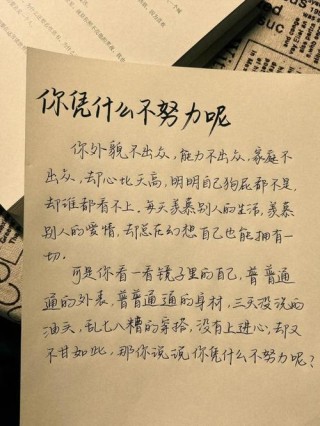 你凭什么不努力呢
你外貌不出众,能力不出众,家庭不
出众,却心比天高,明明自己狗屁都不是,
却谁都看不上。每天羡慕别人的生活,羡慕
别人的爱情,却总在幻想自己也能拥有一
切。
可是你看一看镜子里的自己,普普通
通的外表,普普通通的身材,三天没洗的
油头,乱七八糟的穿搭,没有上进心,却又
不甘如此,那你说说你凭什么不努力呢?